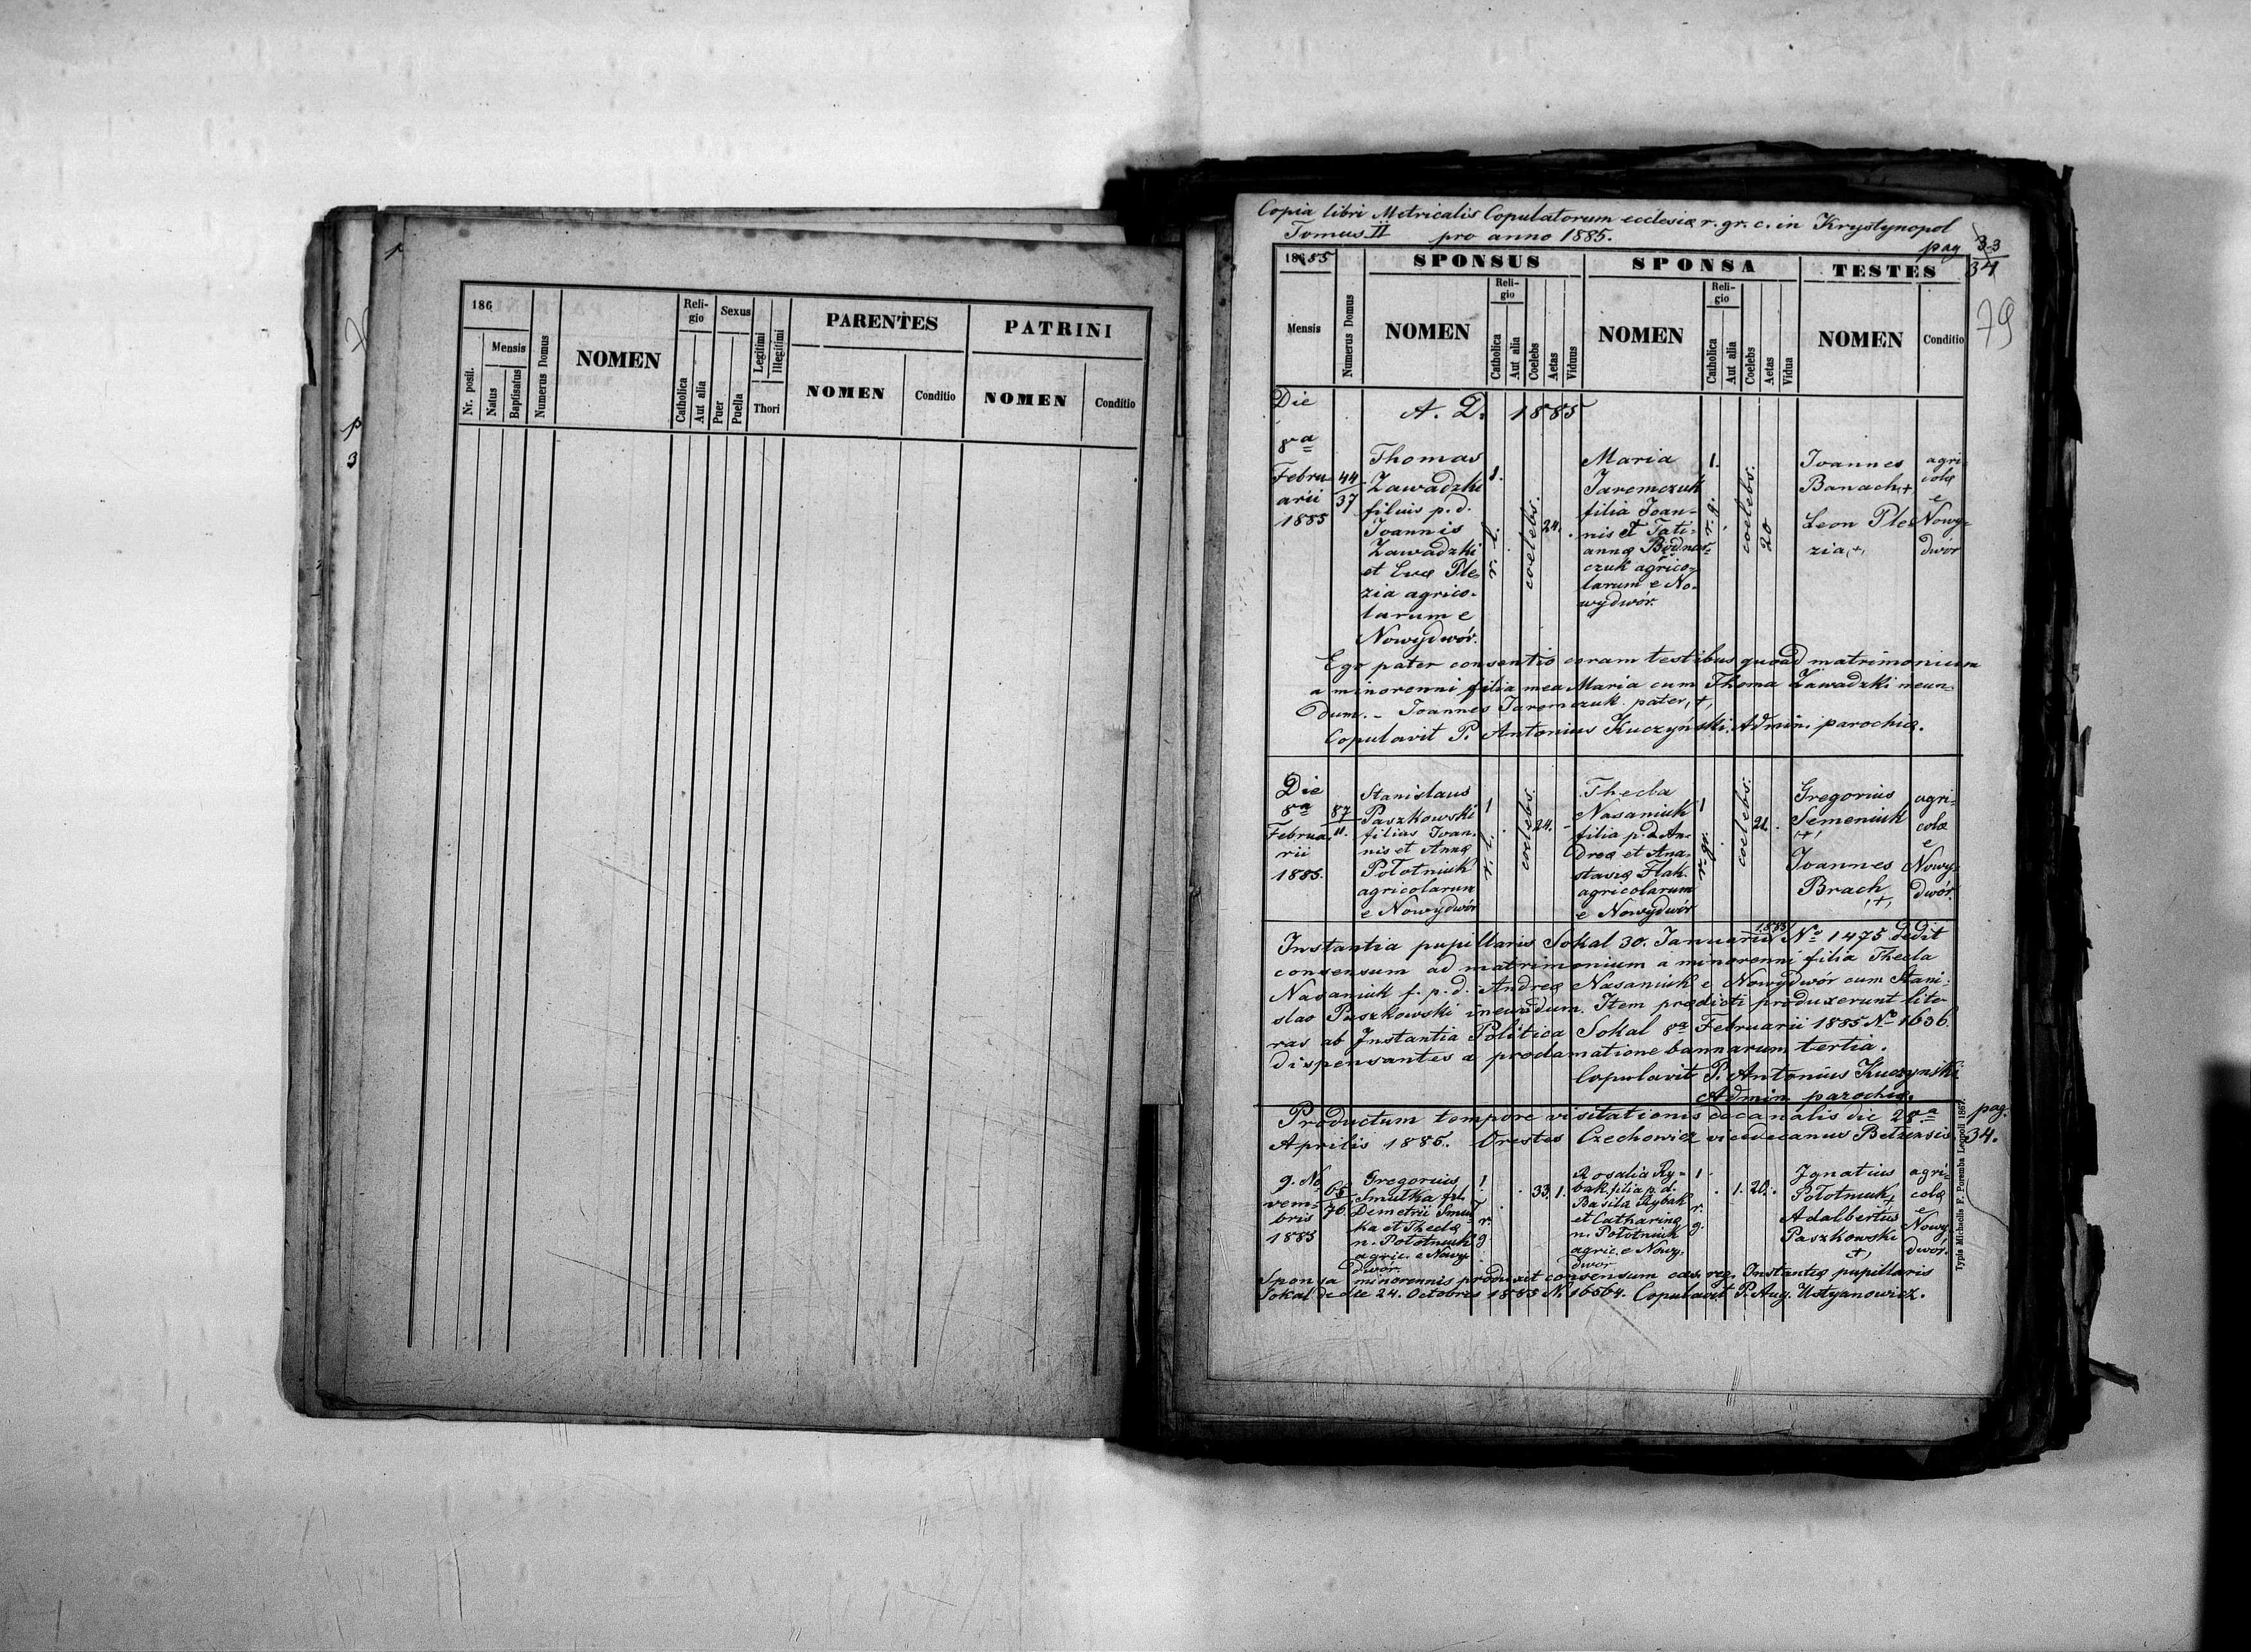 186
Nr. posit.
Mensis
Natus
Baptisatus
Numerus Domus
NOMEN
Religio
Catholica
Aut alia
Sexus
Puer
Puella
Legitimi
Illegitimi
Thori
PARENTES
NOMEN
Conditio
PATRINI
NOMEN
Conditio
p
3
Copia libri Metricalis Copulatorum ecclesiæ r. gr. c. in Krystynopol
Tomus II pro anno 1885.
pag 33
34
79
1885
Mensis
Numerus Domus
SPONSUS
NOMEN
Reli-
gio
Catholica
Aut alia
Coelebs
Aetas
Viduus
SPONSA
NOMEN
Reli-
gio
Catholica
Aut alia
Coelebs
Aetas
Vidua
TESTES
NOMEN
Conditio
A. D. 1885
Die
8va
Febru-
arii
1885
44
37
Thomas
Zawadzki
filius p. d.
Joannis
Zawadzki
et Evæ Ple-
zia agrico-
larum e
Nowydwór.
1.
r. l.
coelebs.
24.
Maria
Jaremczuk
filia Joan-
nis et Tati-
annæ Bodnar-
czuk agrico-
larum e No-
wydwór.
1.
r. g.
coelebs.
20
Joannes
Banach +
Leon Ple-
zia, +,
agri-
colæ
e
Nowy-
dwór
Ego pater consentio coram testibus quoad matrimonium
a minorenni filia mea Maria cum Thoma Zawadzki ineun-
dum. - Joannes Jaremczuk pater, +,
Copulavit P. Antonius Kuczyński, Admin. parochiæ.
Die
8va
Februa-
rii
1885.
87
11.
Stanislaus
Paszkowski
filius Joan-
nis et Annæ
Połotniuk
agricolarum
e Nowydwór
1
r. l.
coelebs.
24.
Thecla
Nasaniuk
filia p. d. An-
dreæ et Ana-
stasiæ Flak
agricolarum
e Nowydwór
1
r. gr.
coelebs.
21.
Gregorius
Semeniuk
+
Joannes
Brach
,+,
agri-
colæ
e
Nowy-
dwór.
Instantia pupillaris Sokal 30. Januarii 1885 No 1475 dedit
consensum ad matrimonium a minorenni filia Thecla
Nasaniuk f. p. d. Andreæ Nasaniuk e Nowydwór cum Stani-
slao Paszkowski ineundum. Item prædicti produxerunt lite-
ras ab Instantia Politica Sokal 8va Februarii 1885 No 1636.
dispensantes a proclamatione bannarum tertia.
Copulavit P. Antonius Kuczynski
Admin. parochiæ.
Productum tempore visitationis decanalis die 28va
Aprilis 1885. Orestes Czechowicz vicedecanus Belzensis.
pag.
34.
9. No-
vem-
bris
1885
65
76
Gregorius
Smutka fil.
Demetrii Smut-
ka et Theclæ
n. Połotniuk
agric. e Nowy-
dwór.
1
r.
g
33.
1.
Rosalia Ry-
bak filia p. d.
Basilii Rybak
et Catharinæ
n. Połotniuk
agric. e Nowy-
dwor
1
r.
g.
1.
20.
Ignatius
Połotniuk +
Adalbertus
Paszkowski
+,
agri-
colæ
e
Nowy-
dwór.
Sponsa minorennis produxit consensum cæs. reg. Instantiæ pupillaris
Sokal de dte 24. Octobris 1885 N. 16564. Copulavit P. Aug. Ustyanowicz.
Typis Michaelis F. Poremba Leopoli 1867.